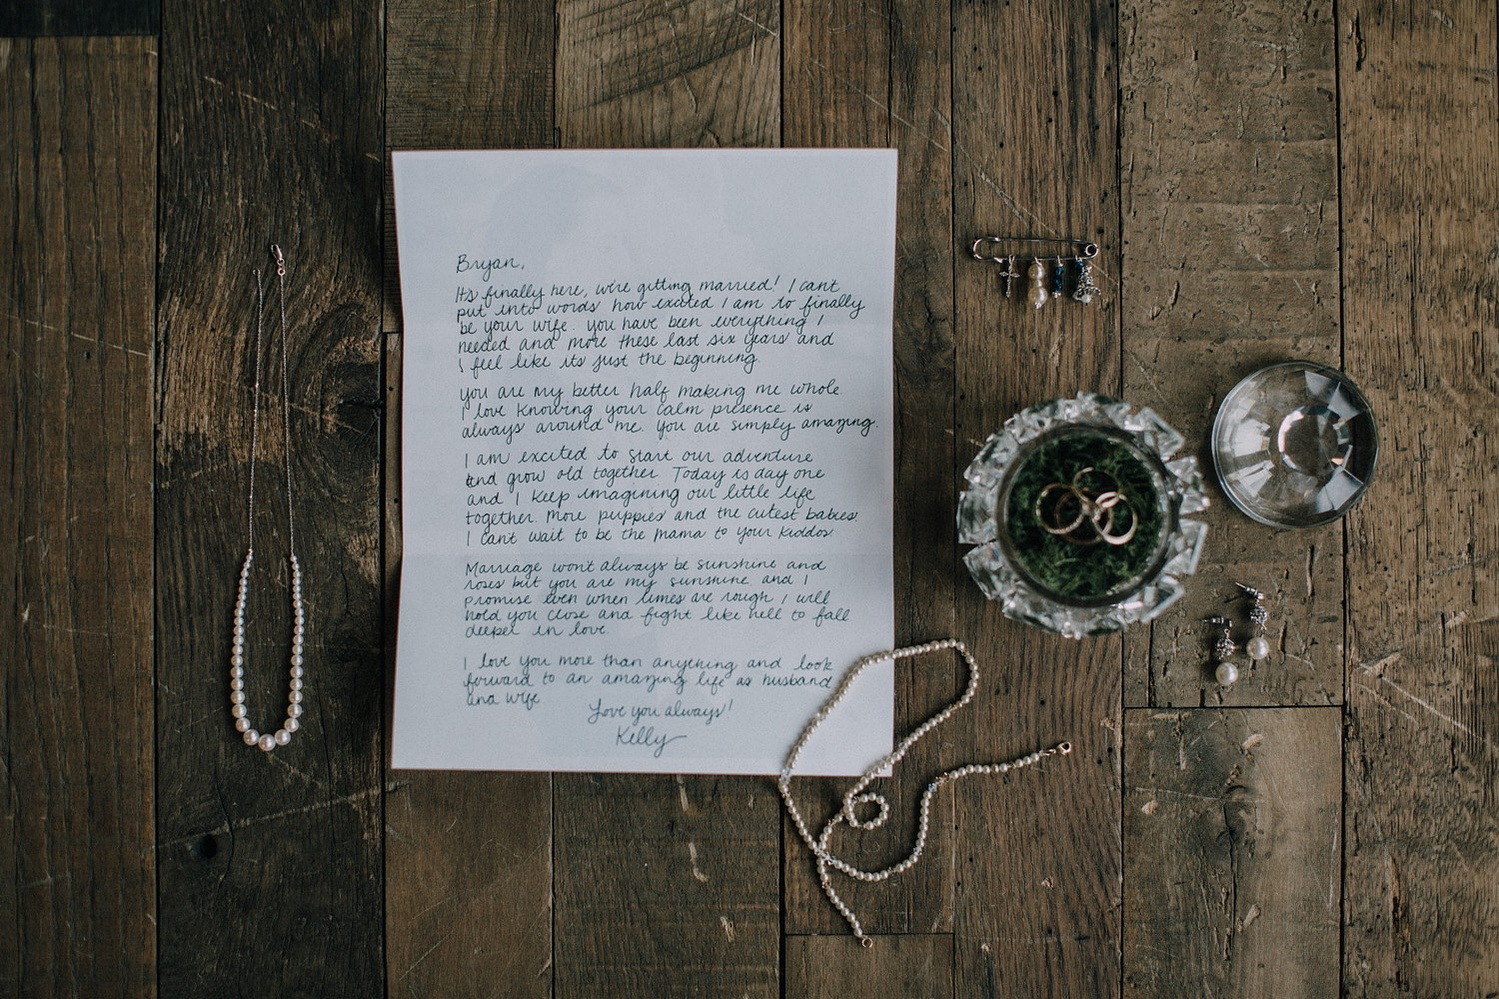 Bryan,
It's finally here, we're getting married! I can't
put into words how excited I am to finally
be your wife. You have been everything I
needed and more these last six years and
I feel like its just the beginning.
You are my better half making me whole.
I love knowing your calm presence is
always around me. You are simply amazing.
I am excited to start our adventure
and grow old together. Today is day one
and I keep imagining our little life
together. More puppies and the cutest babies.
I cant wait to be the mama to your kiddos.
Marriage won't always be sunshine and
roses but you are my sunshine and I
promise even when times are rough I will
hold you close and fight like hell to fall
deeper in love.
I love you more than anything and look
forward to an amazing life as husband
and wife
Love you always!
Kelly